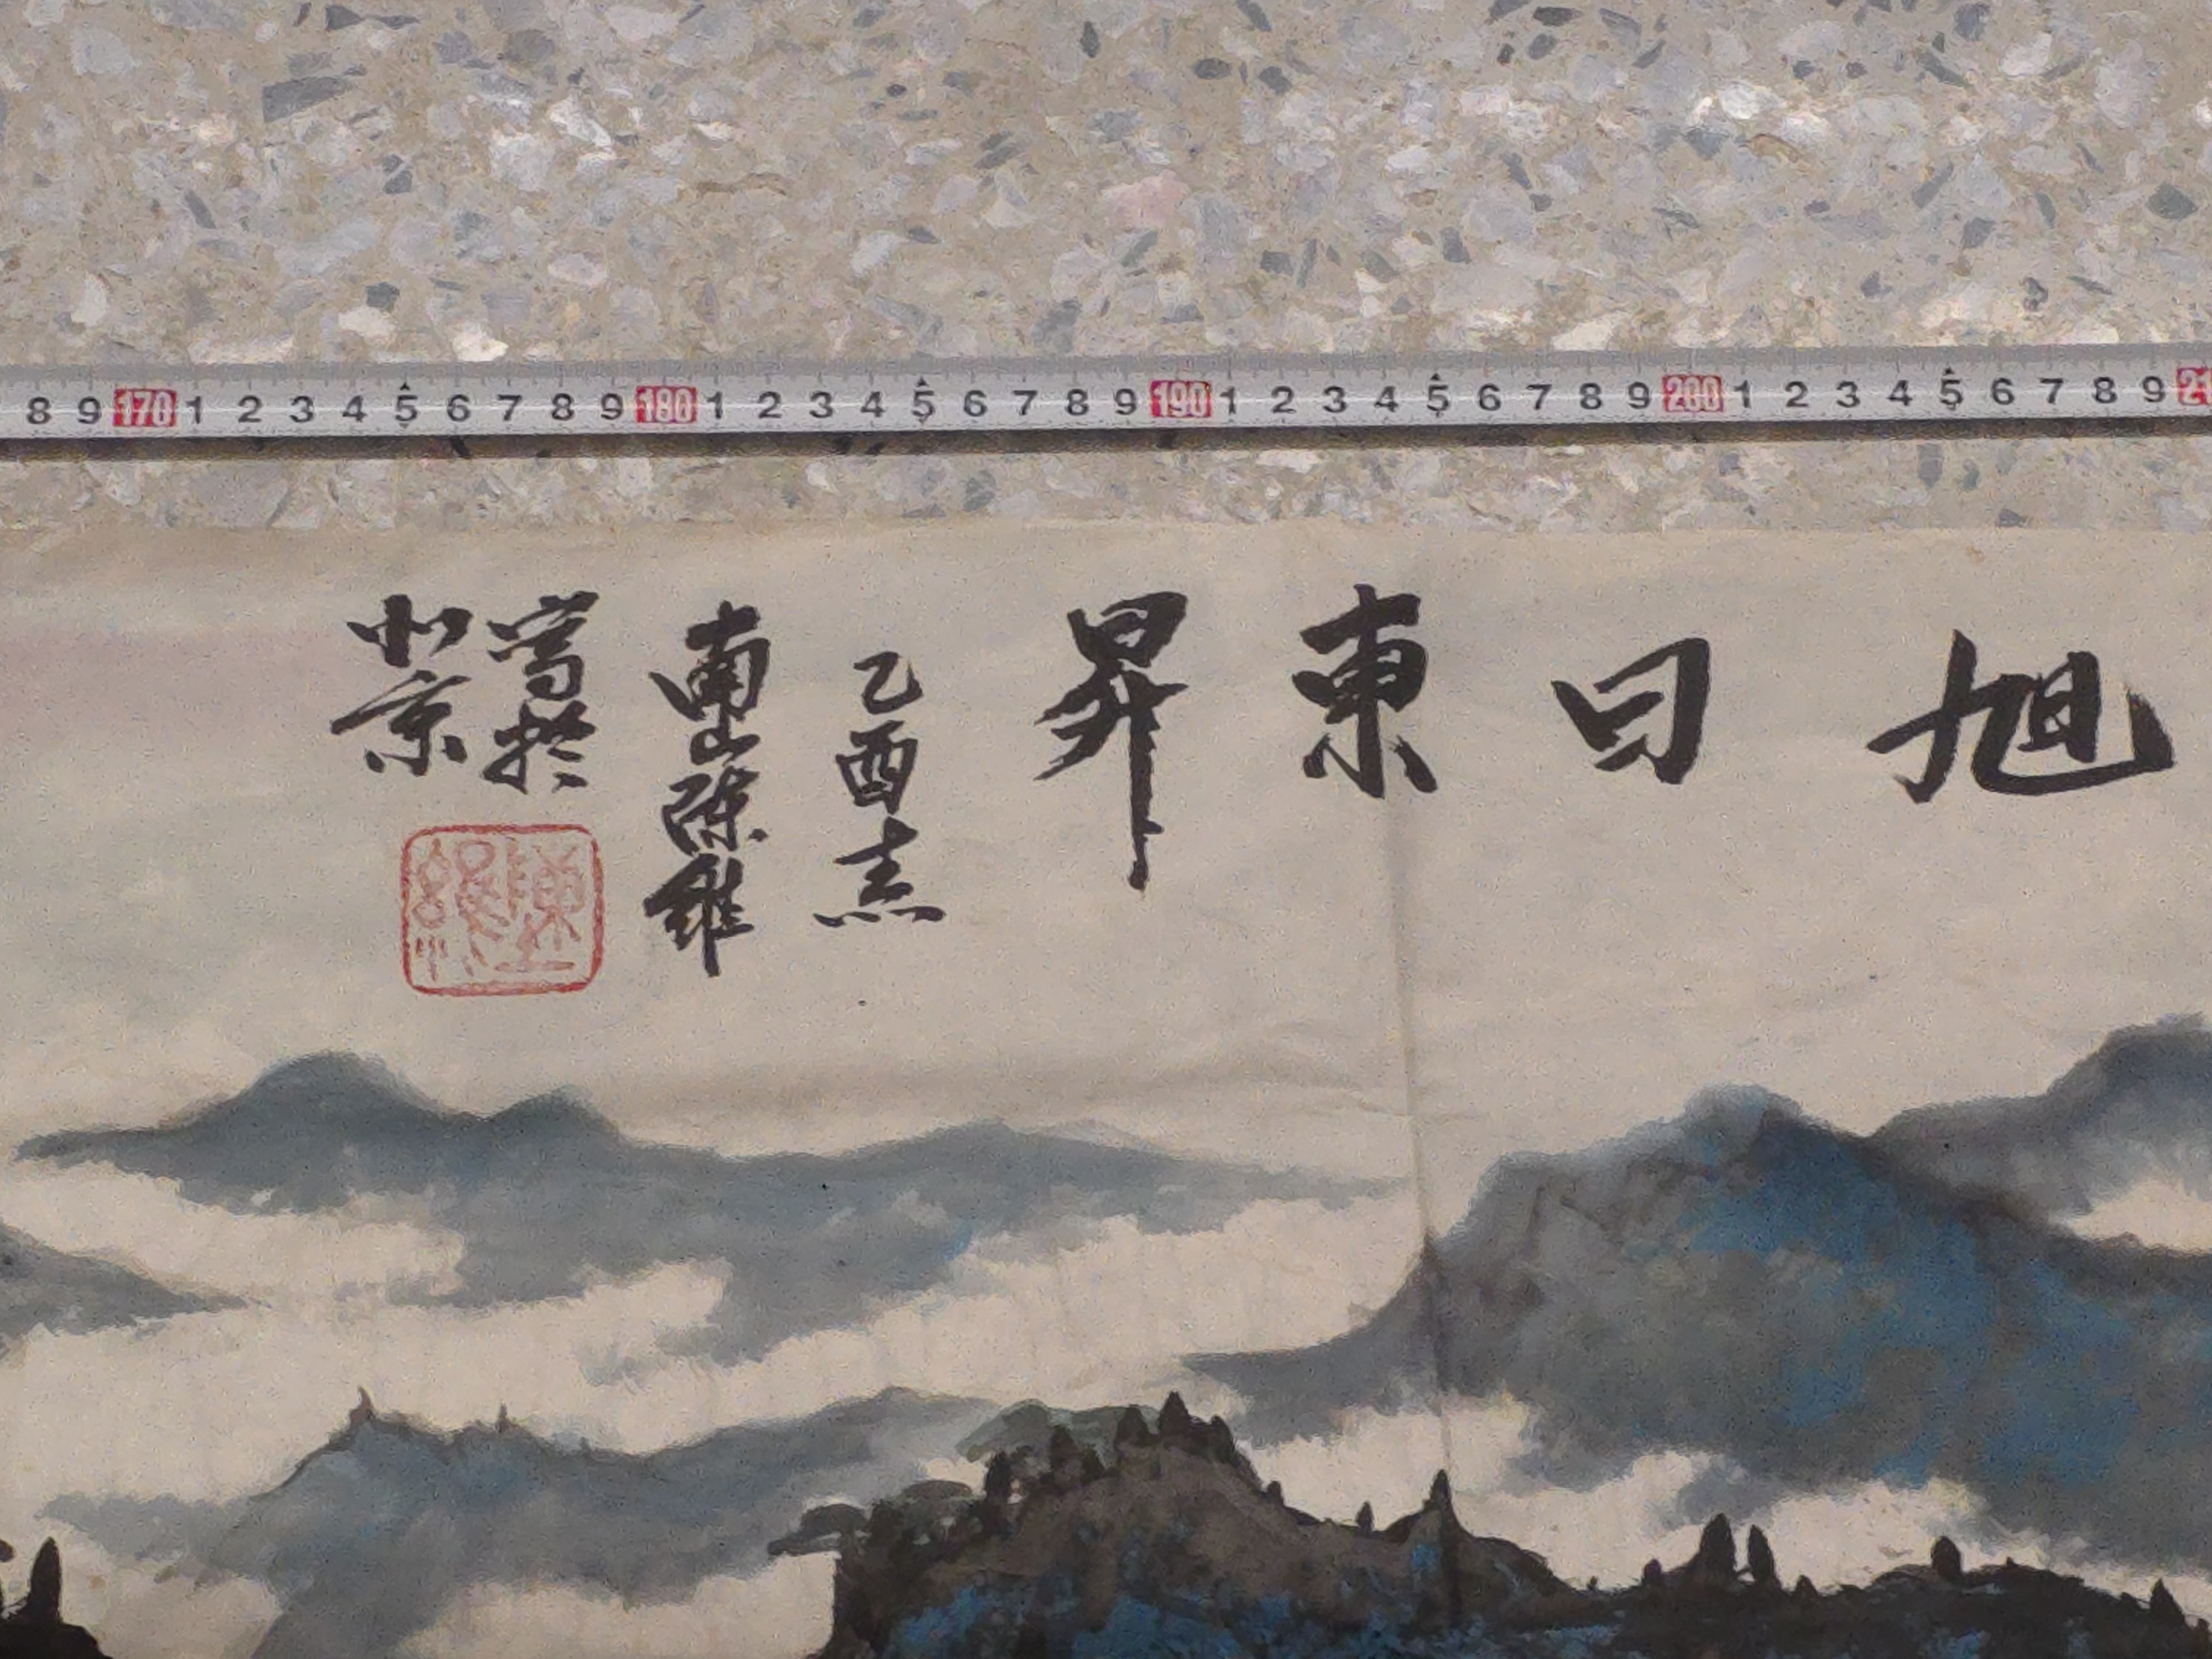 8 9 170 1 2 3 4 5 6 7 8 9 180 1 2 3 4 5 6 7 8 9 190 1 2 3 4 5 6 7 8 9 200 1 2 3 4 5 6 7 8 9
旭日東昇
乙酉
南山陳維
寫於
北京